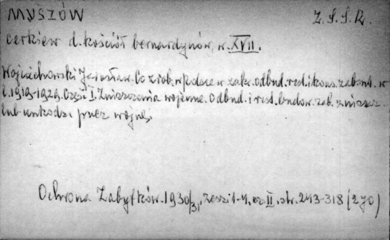 MYSZÓW Z.S.S.R.
cerkiew d. kościół bernardynów, w. XVII.
Wojciechowski Jarosław. Co zrob. w Polsce w zakr. odbud. rest. i kons. zabytk. w
l. 1919-1929. Część I. Zniszczenia wojenne. Odbud. i rest. budow. zab. zniszcz
lub uszkodz. przez wojnę,
Ochrona Zabytków. 1930/31, zeszyt-4, cz. II. str. 243-318 (270)